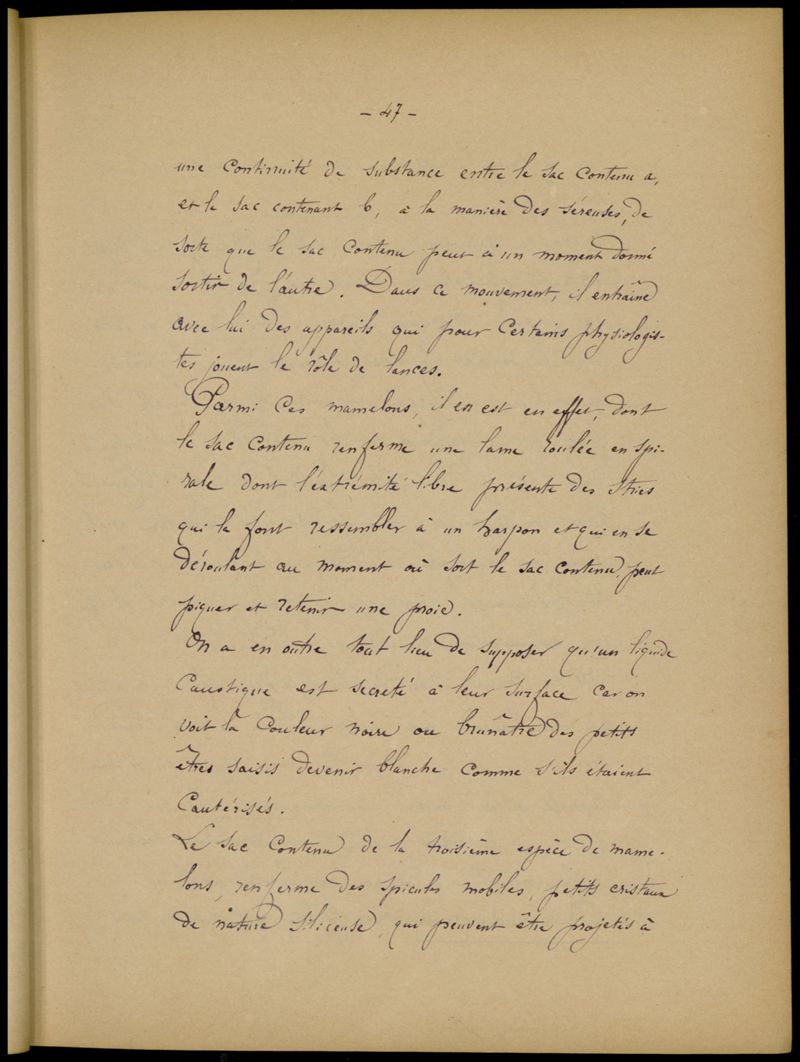 - 47 -
une continuité de substance entre le sac contenu a,
et le sac contenant b, à la manière des séreuses, de
sorte que le sac contenu peut à un moment donné
sortir de l'autre. Dans ce mouvement, il entraîne
avec lui des appareils qui pour certains physiologis-
tes jouent le rôle de lances.
Parmi ces mamelons, il en est en effet, dont
le sac contenu renferme une lame roulée en spi-
rale dont l'extrémité libre présente des stries
qui la font ressembler à un harpon et qui en se
déroulant au moment où sort le sac contenu, peut
piquer et retenir une proie.
On a en outre tout lieu de supposer qu'un liquide
caustique est secreté à leur surface car on
voit la couleur noire ou brunâtre des petits
êtres saisis devenir blanche comme s'ils étaient
cautérisés.
Le sac contenu de la troisième espèce de mame-
lons, renferme des spicules mobiles, petits cristaux
de nature siliceuse, qui peuvent être projetés à